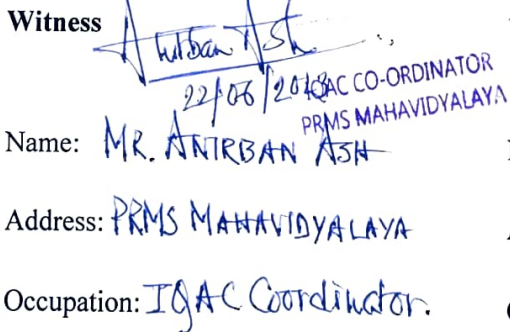 Witness
Anirban Ash
22/06/2018
IQAC CO-ORDINATOR
PRMS MAHAVIDYALAYA
Name: MR. ANIRBAN ASH
Address: PRMS MAHAVIDYALAYA
Occupation: IQAC Coordinator.